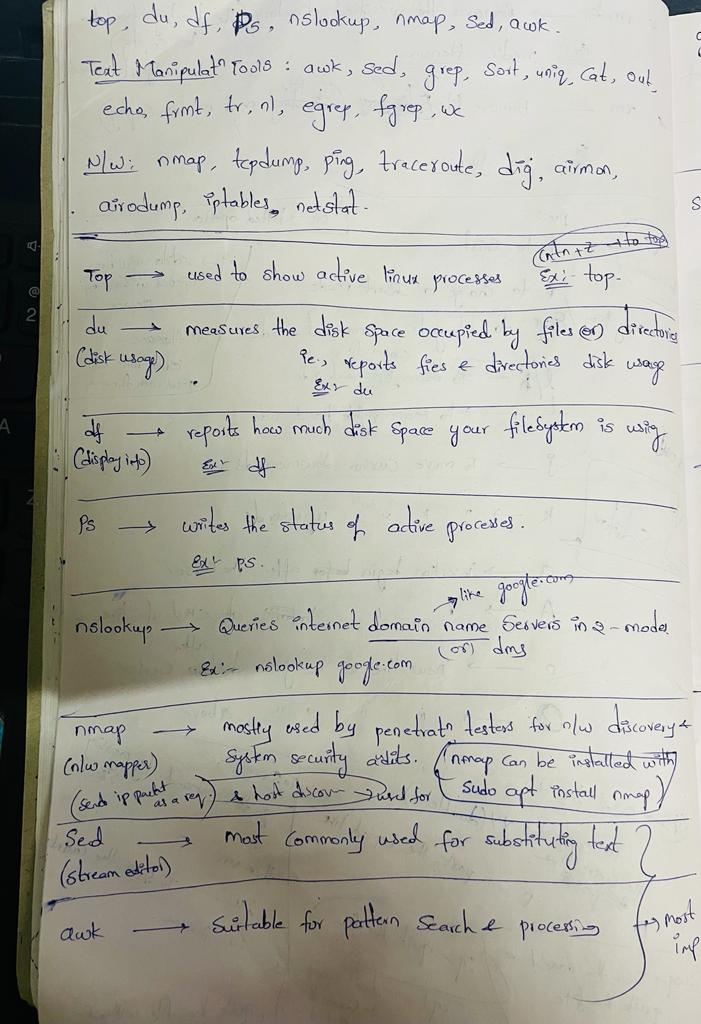 top, du, df, Ps, nslookup, nmap, Sed, awk.
Text Manipulatn Tools : awk, sed, grep, Sort, uniq, Cat, out,
echo, frmt, tr, nl, egrep, fgrep, wc
N/w: nmap, tcpdump, ping, traceroute, dig, airmon,
airodump, iptables, netstat.
cntn+z → to top
Top → used to show active linux processes Ex:- top.
du → measures the disk space occupied by files (or) directories
(disk usage) ie., reports fies & directories disk usage
Ex:- du
df → reports how much disk space your fileSystem is usig
(display info) Ex:- df
Ps → writes the status of active processes.
Ex:- ps.
→ like google.com
nslookup → Queries internet domain name Servers in 2-modes
(or) dms
Ex:- nslookup google.com
nmap → mostly used by penetratn testers for n/w discovery &
(n/w mapper) System security adits. (nmap can be installed with
(sends ip packt as a req.) & host discov → used for sudo apt install nmap)
Sed → most commonly used for substituting text
(stream editor)
awk → Suitable for pattern Search & processing → most
imp